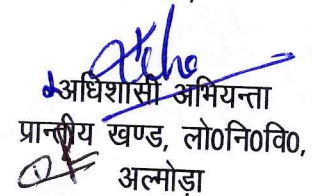 अधिशासी अभियन्ता
प्रान्तीय खण्ड, लो०नि०वि०,
अल्मोड़ा